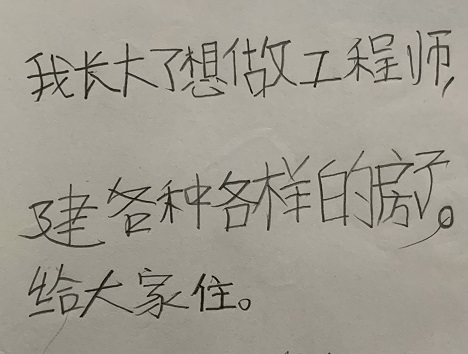 我长大了想做工程师,
建各种各样的房子。
给大家住。